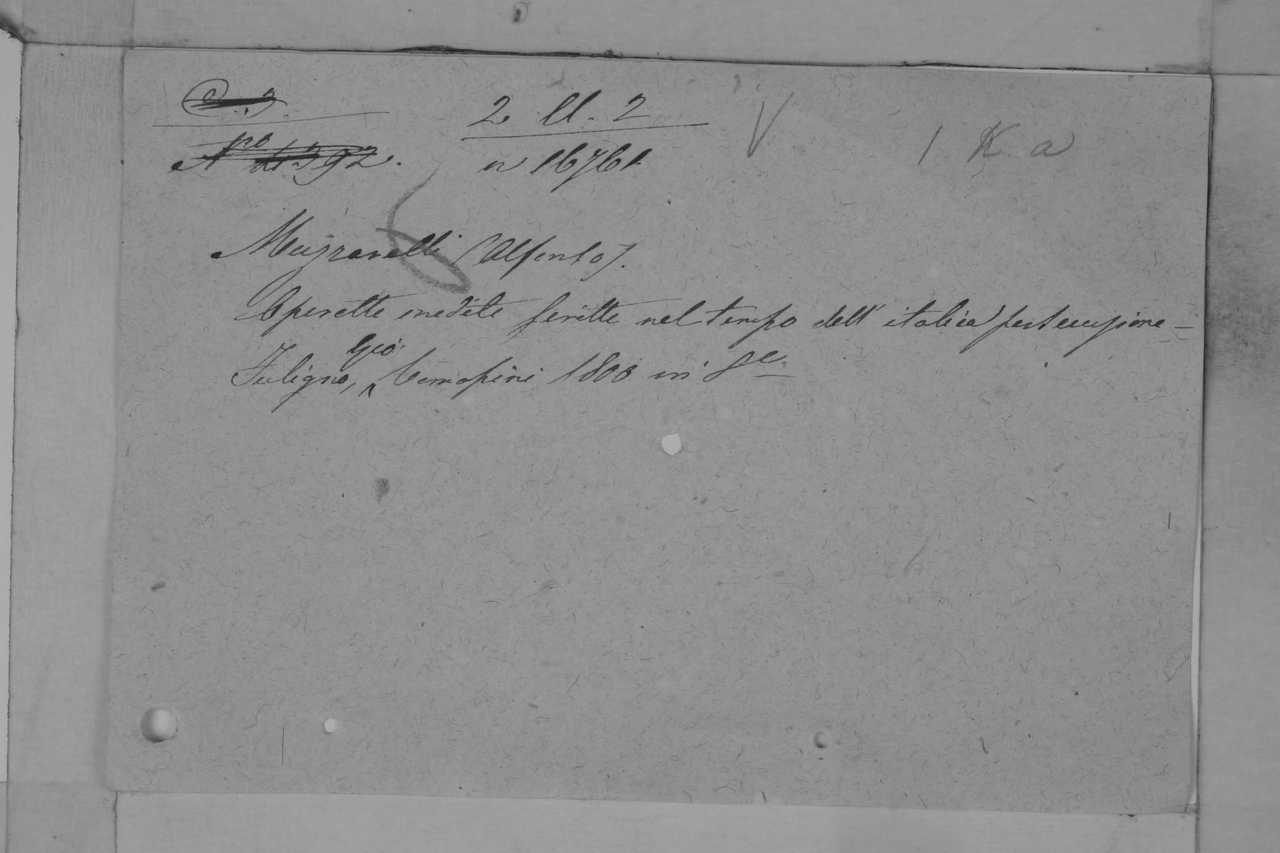 2 ll. 2
n 16761
V
1 K a
Muzzarelli (Alfonso).
Operette inedite scritte nel tempo dell' italica persecuzione –
Fuligno, Gio: Tomasini 1808 in 8°